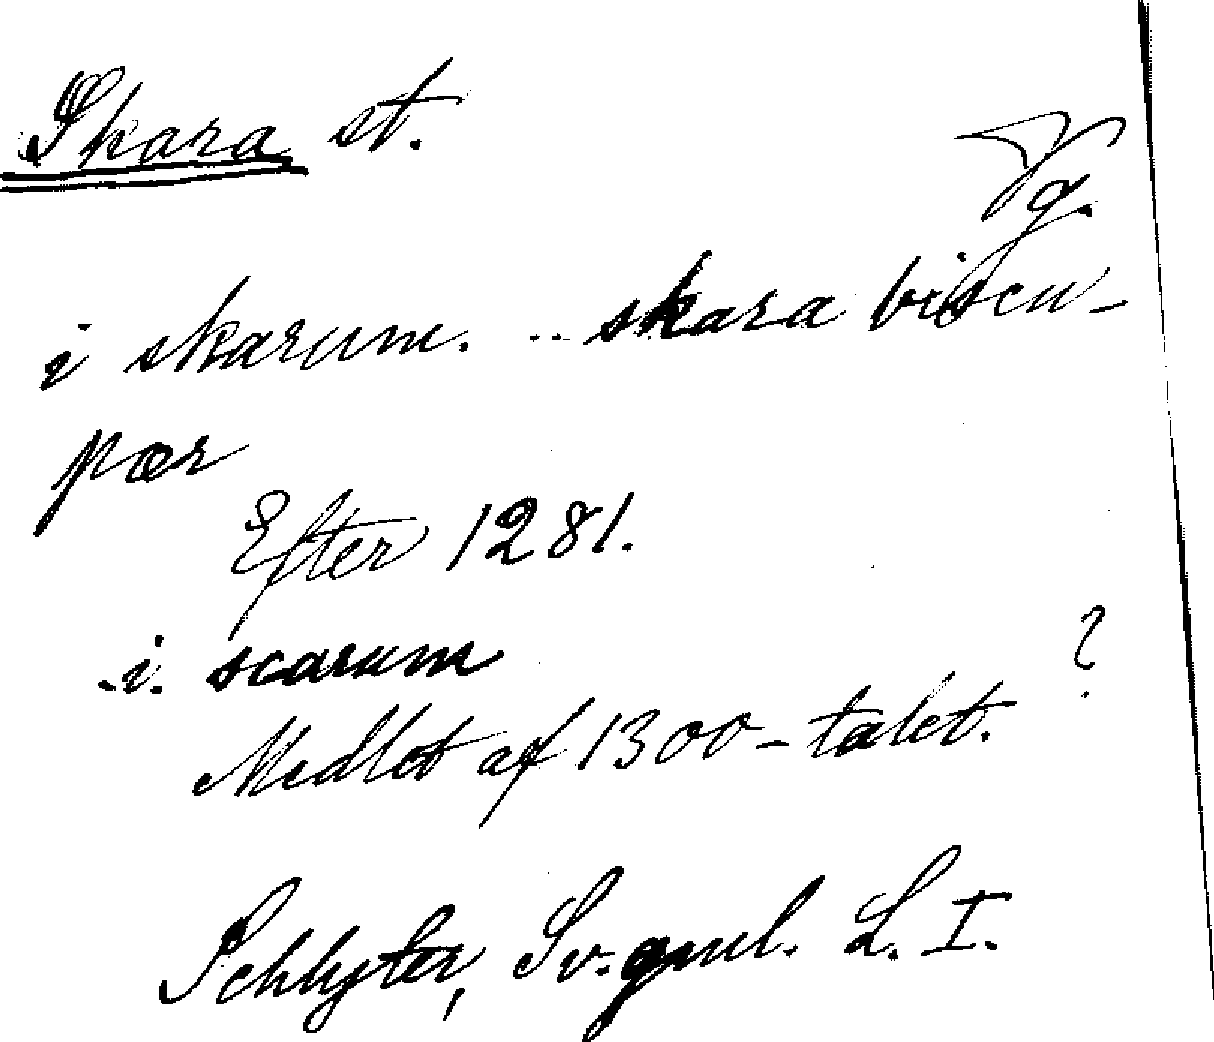 Skara st.
Vg.
i skarum. .. skara biscu-
pær
Efter 1281.
.i. scarum
?
Medlet af 1300-talet.
Schlyter, Sv. gml. L. I.